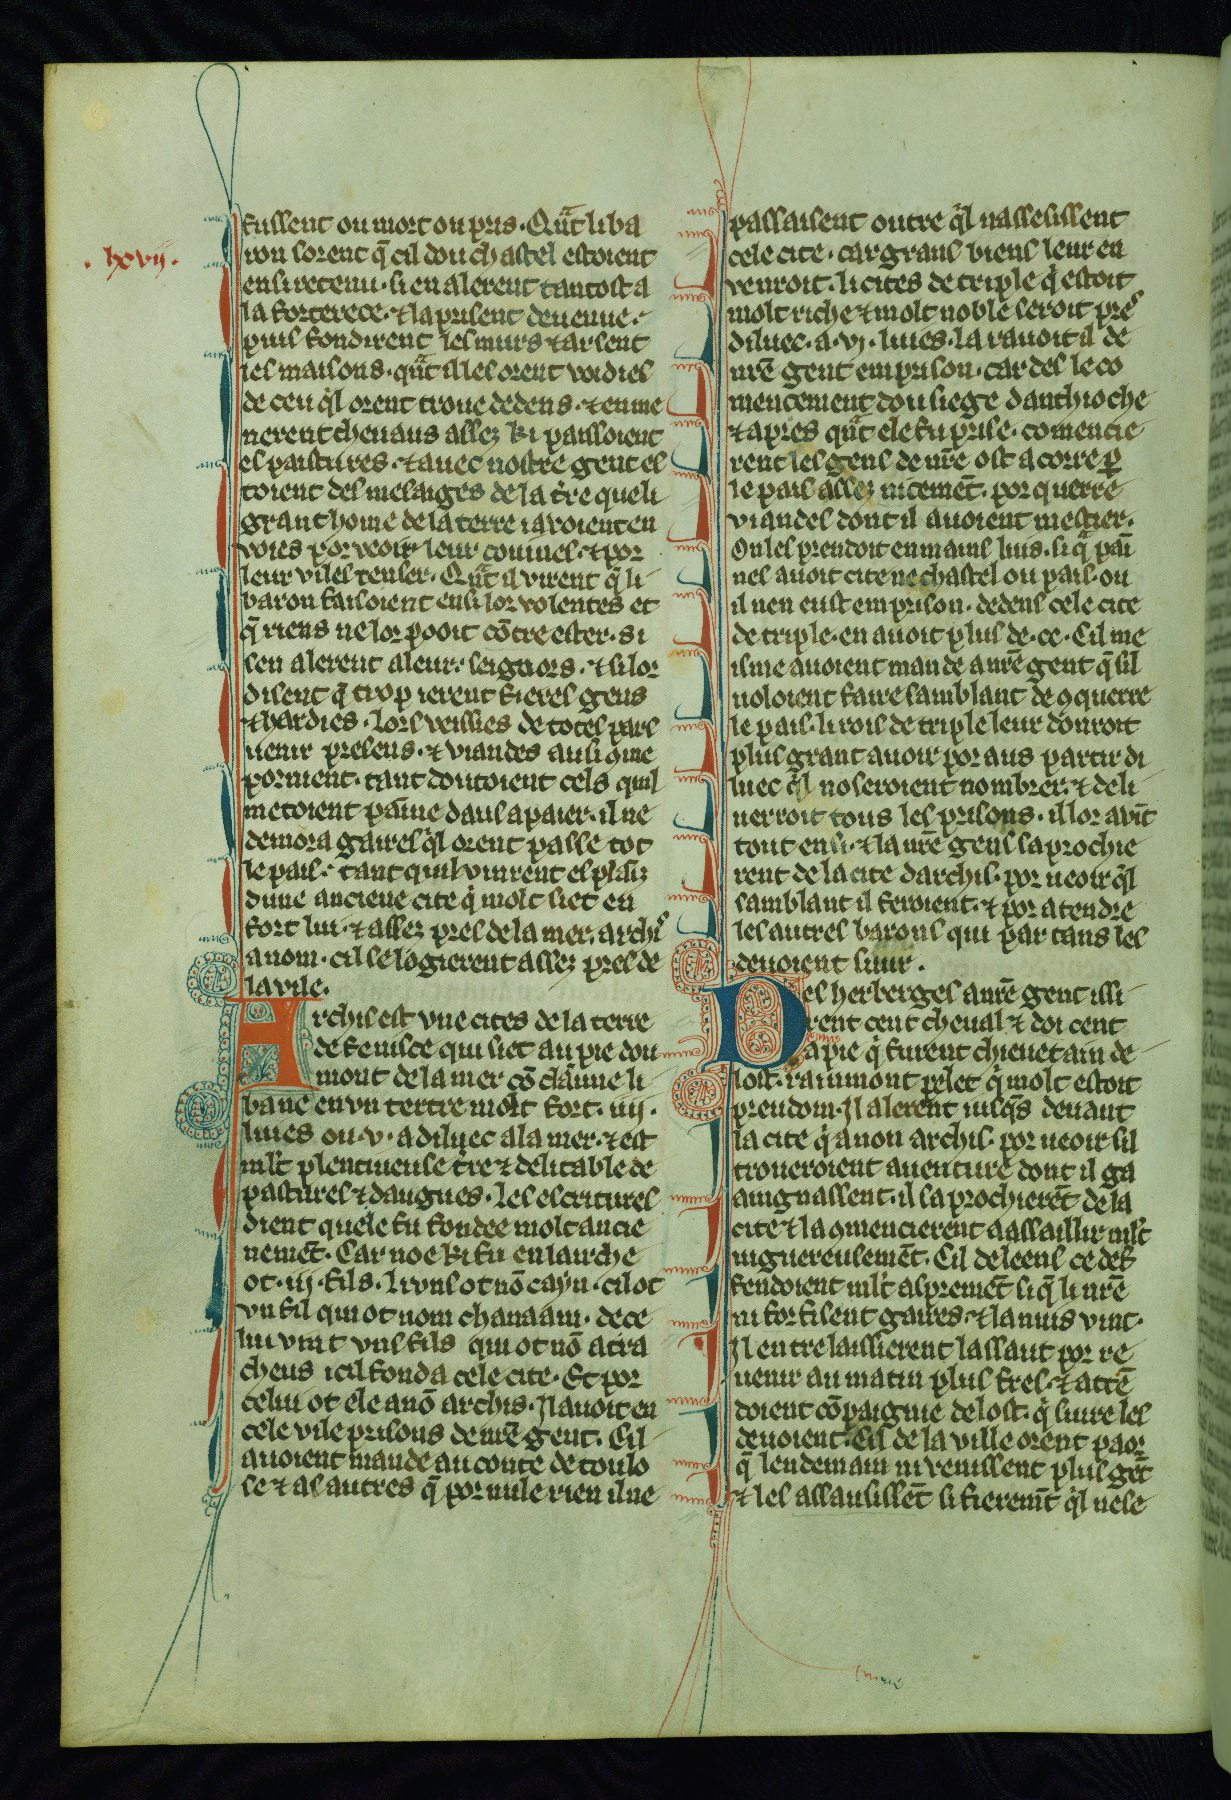 .lxvij.
fussent ou mort ou pris. Qu̅t li ba
ron sorent q̅ cil dou chastel estoient
ensi retenu. si en alerent tantost a
la forterece. ⁊ la prisent de venue.
puis fondirent les murs ⁊ arsent
les maisons. qu̅t il les orent voidies
de ceu q̓l orent troue dedens. ⁊ enme
nerent cheuaus assez ki paissoient
es pastures. ⁊ auec nostre gent es
toient des mesaiges de la t̓re que li
grant home de la terre i auoient en
uoies por veoir leur couines. ⁊ por
leur viles tenser. Qu̅t il virent q̅ li
baron faisoient ensi lor volentes et
q̅ riens ne lor pooit co̅tre ester. si
sen alerent a leur seignors. ⁊ si lor
disent q̅ trop ierent fieres gens
⁊ hardies. lors veissies de totes pars
uenir presens. ⁊ viandes ausi 9me
por nient. tant doutoient cels quil
metoient pai̅ne daus apaier. il ne
demora gaires q̓l orent passe tot
le pais. tant quil vinrent es plai̅z
dune anciene cite q̓ molt siet en
fort liu. ⁊ assez pres de la mer. archis
a nom. cil se logierent assez pres de
la vile.
Archis est vne cites de la terre
de fenisce qui siet au pie dou
mont de la mer co̅ claimme li
bane en vn tertre molt fort. iiij.
liues ou .v. a diluec a la mer. ⁊ est
ml̓t plentiueuse t̓re ⁊ delitable de
pastures ⁊ daugues. les escritures
dient quele fu fondee molt ancie
neme̅t. Car noe ki fu en larche
ot .iij. fils. li vns ot no̅ cayn. cil ot
vn fil qui ot nom chanaam. de ce
lui vint vns fils qui ot no̅ atra
cheus icil fonda cele cite. Et por
celui ot ele a no̅ archis. Jl auoit en
cele vile prisons de nr̅e gent. Cil
auoient mande au conte de toulo
se ⁊ as autres q̅ por nule rien il ne
passaisent outre q̓l nassesissent
cele cite. car grans biens leur en
venroit. li cites de triple q̓ estoit
molt riche ⁊ molt noble seroit pres
diluec. a .vj. liues. la rauoit il de
nr̅e gent em prison. car des le co
mencement dou siege danthioche
⁊ apres qu̅t ele fu prise. comencie
rent les gens de nr̅e ost a corre p̱
le pais assez niceme̅t. por querre
viandes dont il auoient mestier.
On les prendoit en mains liu̅s. si q̓ pai̅
nes auoit cite ne chastel ou pais. ou
il nen eust em prison. dedens cele cite
de triple. en auoit plus de .cc. Cil me
isme auoient mande a nr̅e gent q̅ sil
uoloient faire samblant de 9querre
le pais. li rois de triple leur donroit
plus grant auoir por aus partir di
luec q̓l noseroient nombrer. ⁊ deli
uerroit tous les prisons. il lor avi̅t
tout ensi. ⁊ la nr̅e gens saprochie
rent de la cite darchis. por ueoir q̓l
samblant il feroient. ⁊ por atendre
les autres barons qui par tans les
deuoient siuir.
Des herberges a nr̅e gent issi
rent cent cheual ⁊ doi cent
a pie q̓ furent chieuetain de
lost. raimmont pelet q̓ molt estoit
preudom. Jl alerent iusq̓s deuant
la cite q̓ a non archis. por ueoir sil
troueroient auenture dont il ga
aingnassent. il saprochiere̅t de la
cite ⁊ la 9mencierent a assaillir ml̓t
uiguereuseme̅t. Cil deleens ce def
fendoient ml̓t aspreme̅t si q̅ li nr̅e
ni forfisent gaires. ⁊ la nuis vint.
Jl entrelaissierent lassaut por re
uenir au matin plus fres. ⁊ atte̅
doient co̅paignie de lost. q̓ siuire les
deuoient. Cil de la ville orent paor
q̅ lendemain ni venissent plus ge̅t
⁊ les assausisse̅t si fiereme̅t q̓l nese